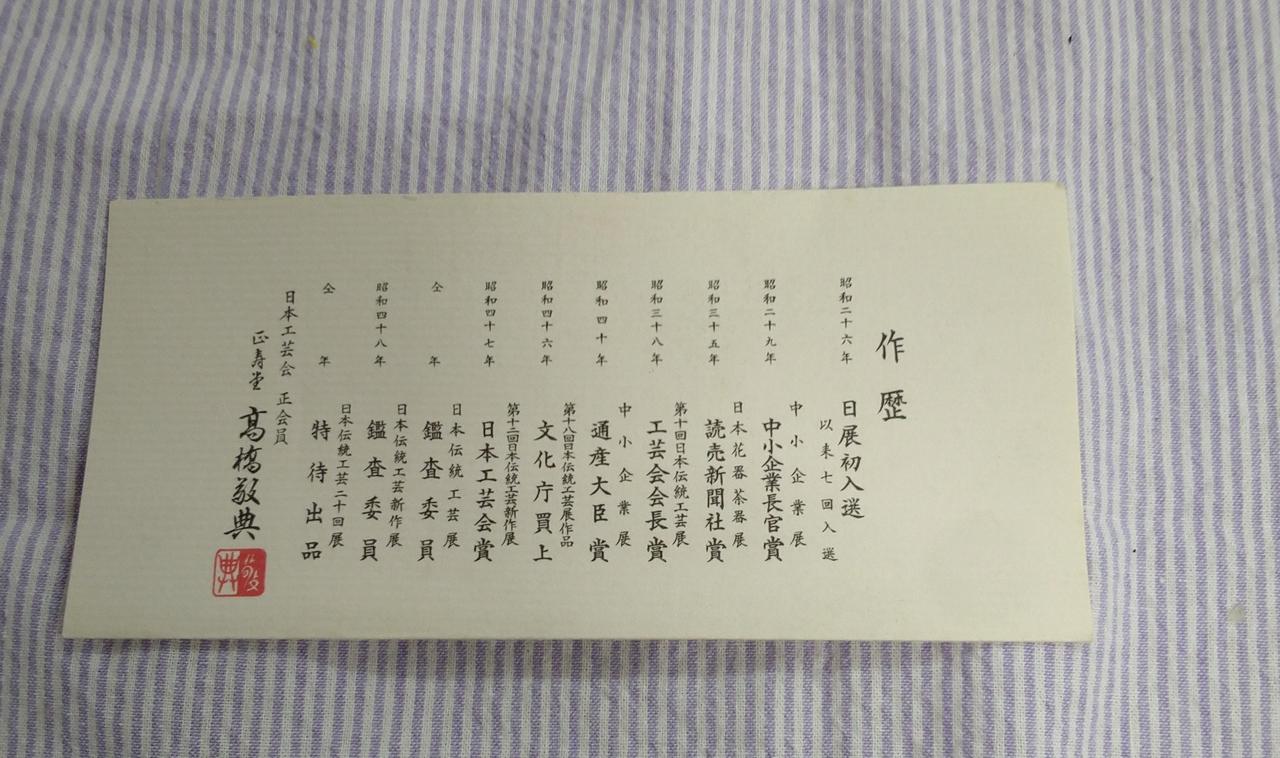 作歴
昭和二十六年 日展初入送
以来七回入選
中小企業展
昭和二十九年 中小企業長官賞
日本花器茶器展
昭和三十五年 読売新聞社賞
第十回日本伝統工芸展
昭和三十八年 工芸会会長賞
中小企業展
昭和四十年 通産大臣賞
第十八回日本伝統工芸展作品
昭和四十六年 文化庁買上
第十二回日本伝統工芸新作展
昭和四十七年 日本工芸会賞
日本伝統工芸展
仝年 鑑査委員
日本伝統工芸新作展
昭和四十八年 鑑査委員
日本伝統工芸二十回展
仝年 特待出品
日本工芸会 正会員
正寿堂 高橋敬典
敬典